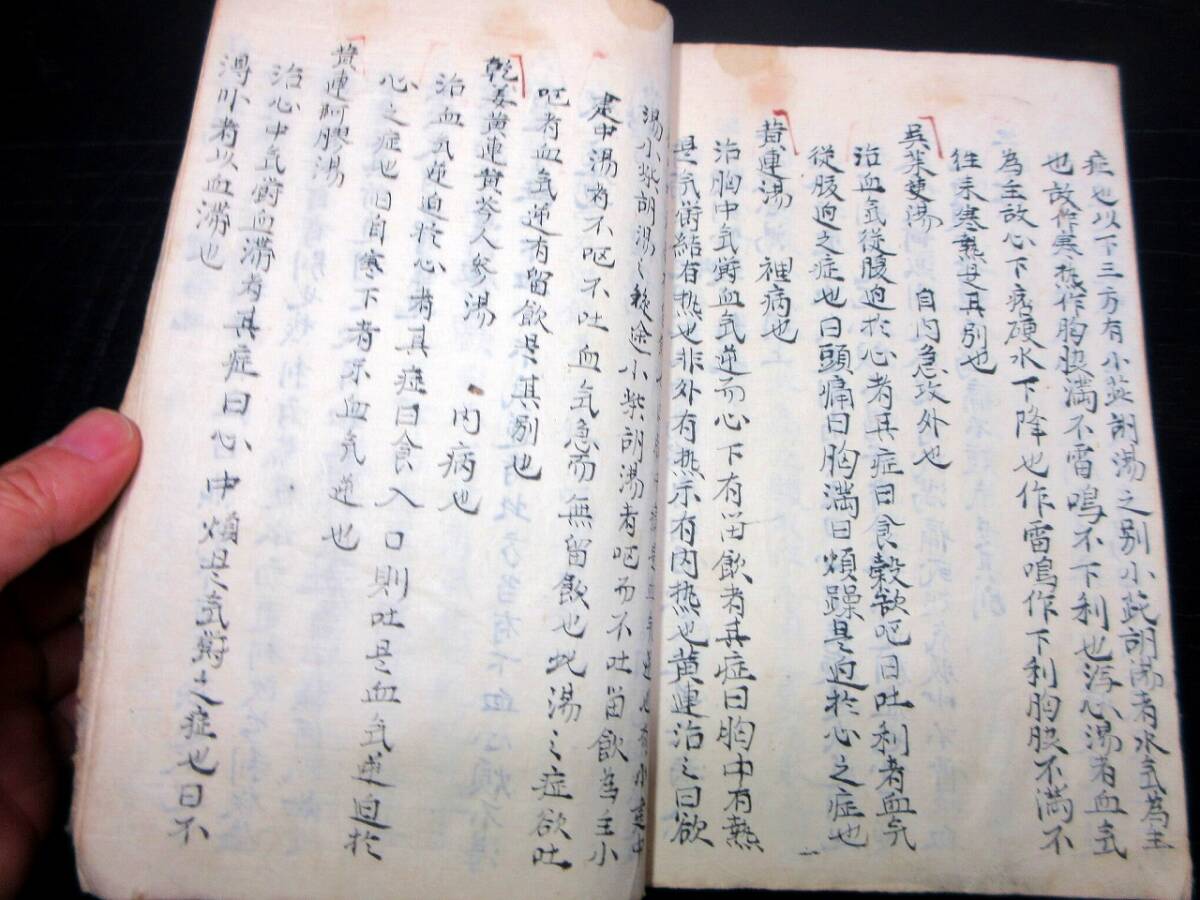 症也以下三方有小茈胡湯之別小茈胡湯者水気為主
也故作寒热作胸脇満不雷鳴不下利也泻心湯者血気
為主故心下痞硬水下降也作雷鳴作下利胸脇不満不
往来寒熱是其別也
呉茱萸湯　自内急攻外也
治血気従腹迫於心者其症曰食穀欲呕曰吐利者血気
従腹迫之症也曰頭痛曰胸満曰煩躁是迫於心之症也
黄連湯　裡病也
治胸中気欝血気逆而心下有畄飲者其症曰胸中有熱
是気欝結有热也非外有热示有内热也黄連治之曰欲
湯小柴胡湯之 小柴胡湯者呕而不吐畄飲為主小
建中湯者不呕不吐血気急而無留飲也此湯之症欲吐
呕者血気逆有留飲是其別也
乾姜黄連黄芩人参湯　内病也
治血気逆迫於心者其症曰食入口則吐是血気逆迫於
心之症也曰自寒下者示血気逆也
黄連阿膠湯
治心中気欝血滞者其症曰心中煩是気欝之症也曰不
得卧者以血滞也